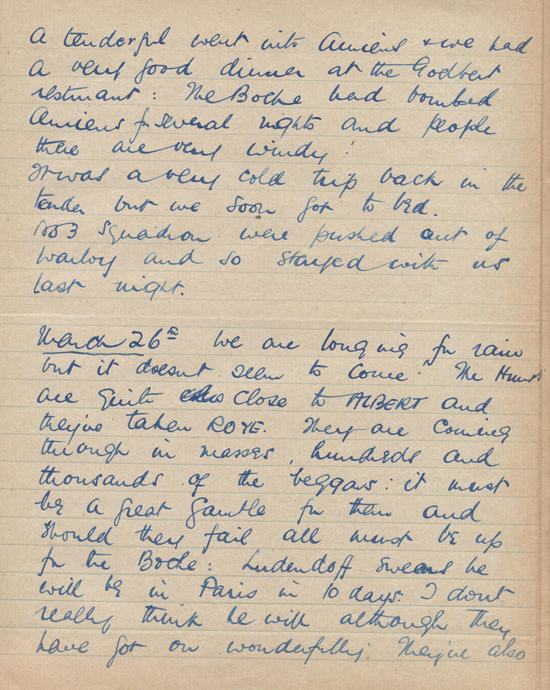 A tenderful went into Amiens & we had
a very good dinner at the Godbert
resturant: The Boche had bombed
Amiens for several nights and people
there are very windy!
It was a very cold trip back in the
tender but we soon got to bed.
No 3 Squadron were pushed out of
Warloy and so stayed with us
last night.
March 26th We are longing for rain
but it doesnt seem to come. The Huns
are quite close to ALBERT and
they've taken ROYE. They are coming
through in masses, hundreds and
thousands of the beggars: it must
be a great gamble for them and
should they fail all must be up
for the Boche: Ludendoff swears he
will be in Paris in 10 days. I dont
really think he will although they
have got on wonderfully. They've also